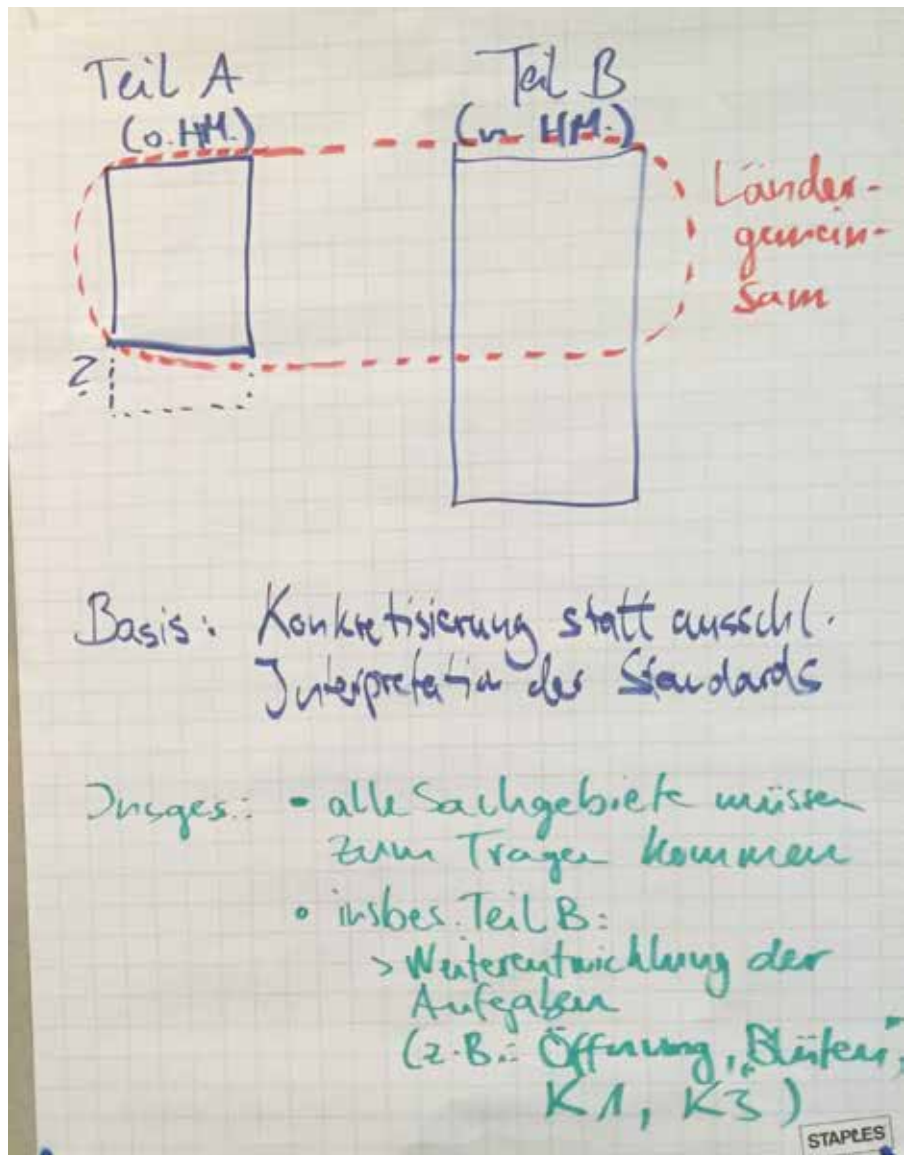 Teil A
(o. HM.)
Teil B
(m HM.)
Länder-
gemein-
sam
?
Basis: Konkretisierung statt ausschl.
Interpretation der Standards
Insges.: - alle Sachgebiete müssen
zum Tragen kommen
• insbes. Teil B:
> Weiterentwicklung der
Aufgaben
(z.B.: Öffnung, "Blüten",
K1, K3)
STAPLES